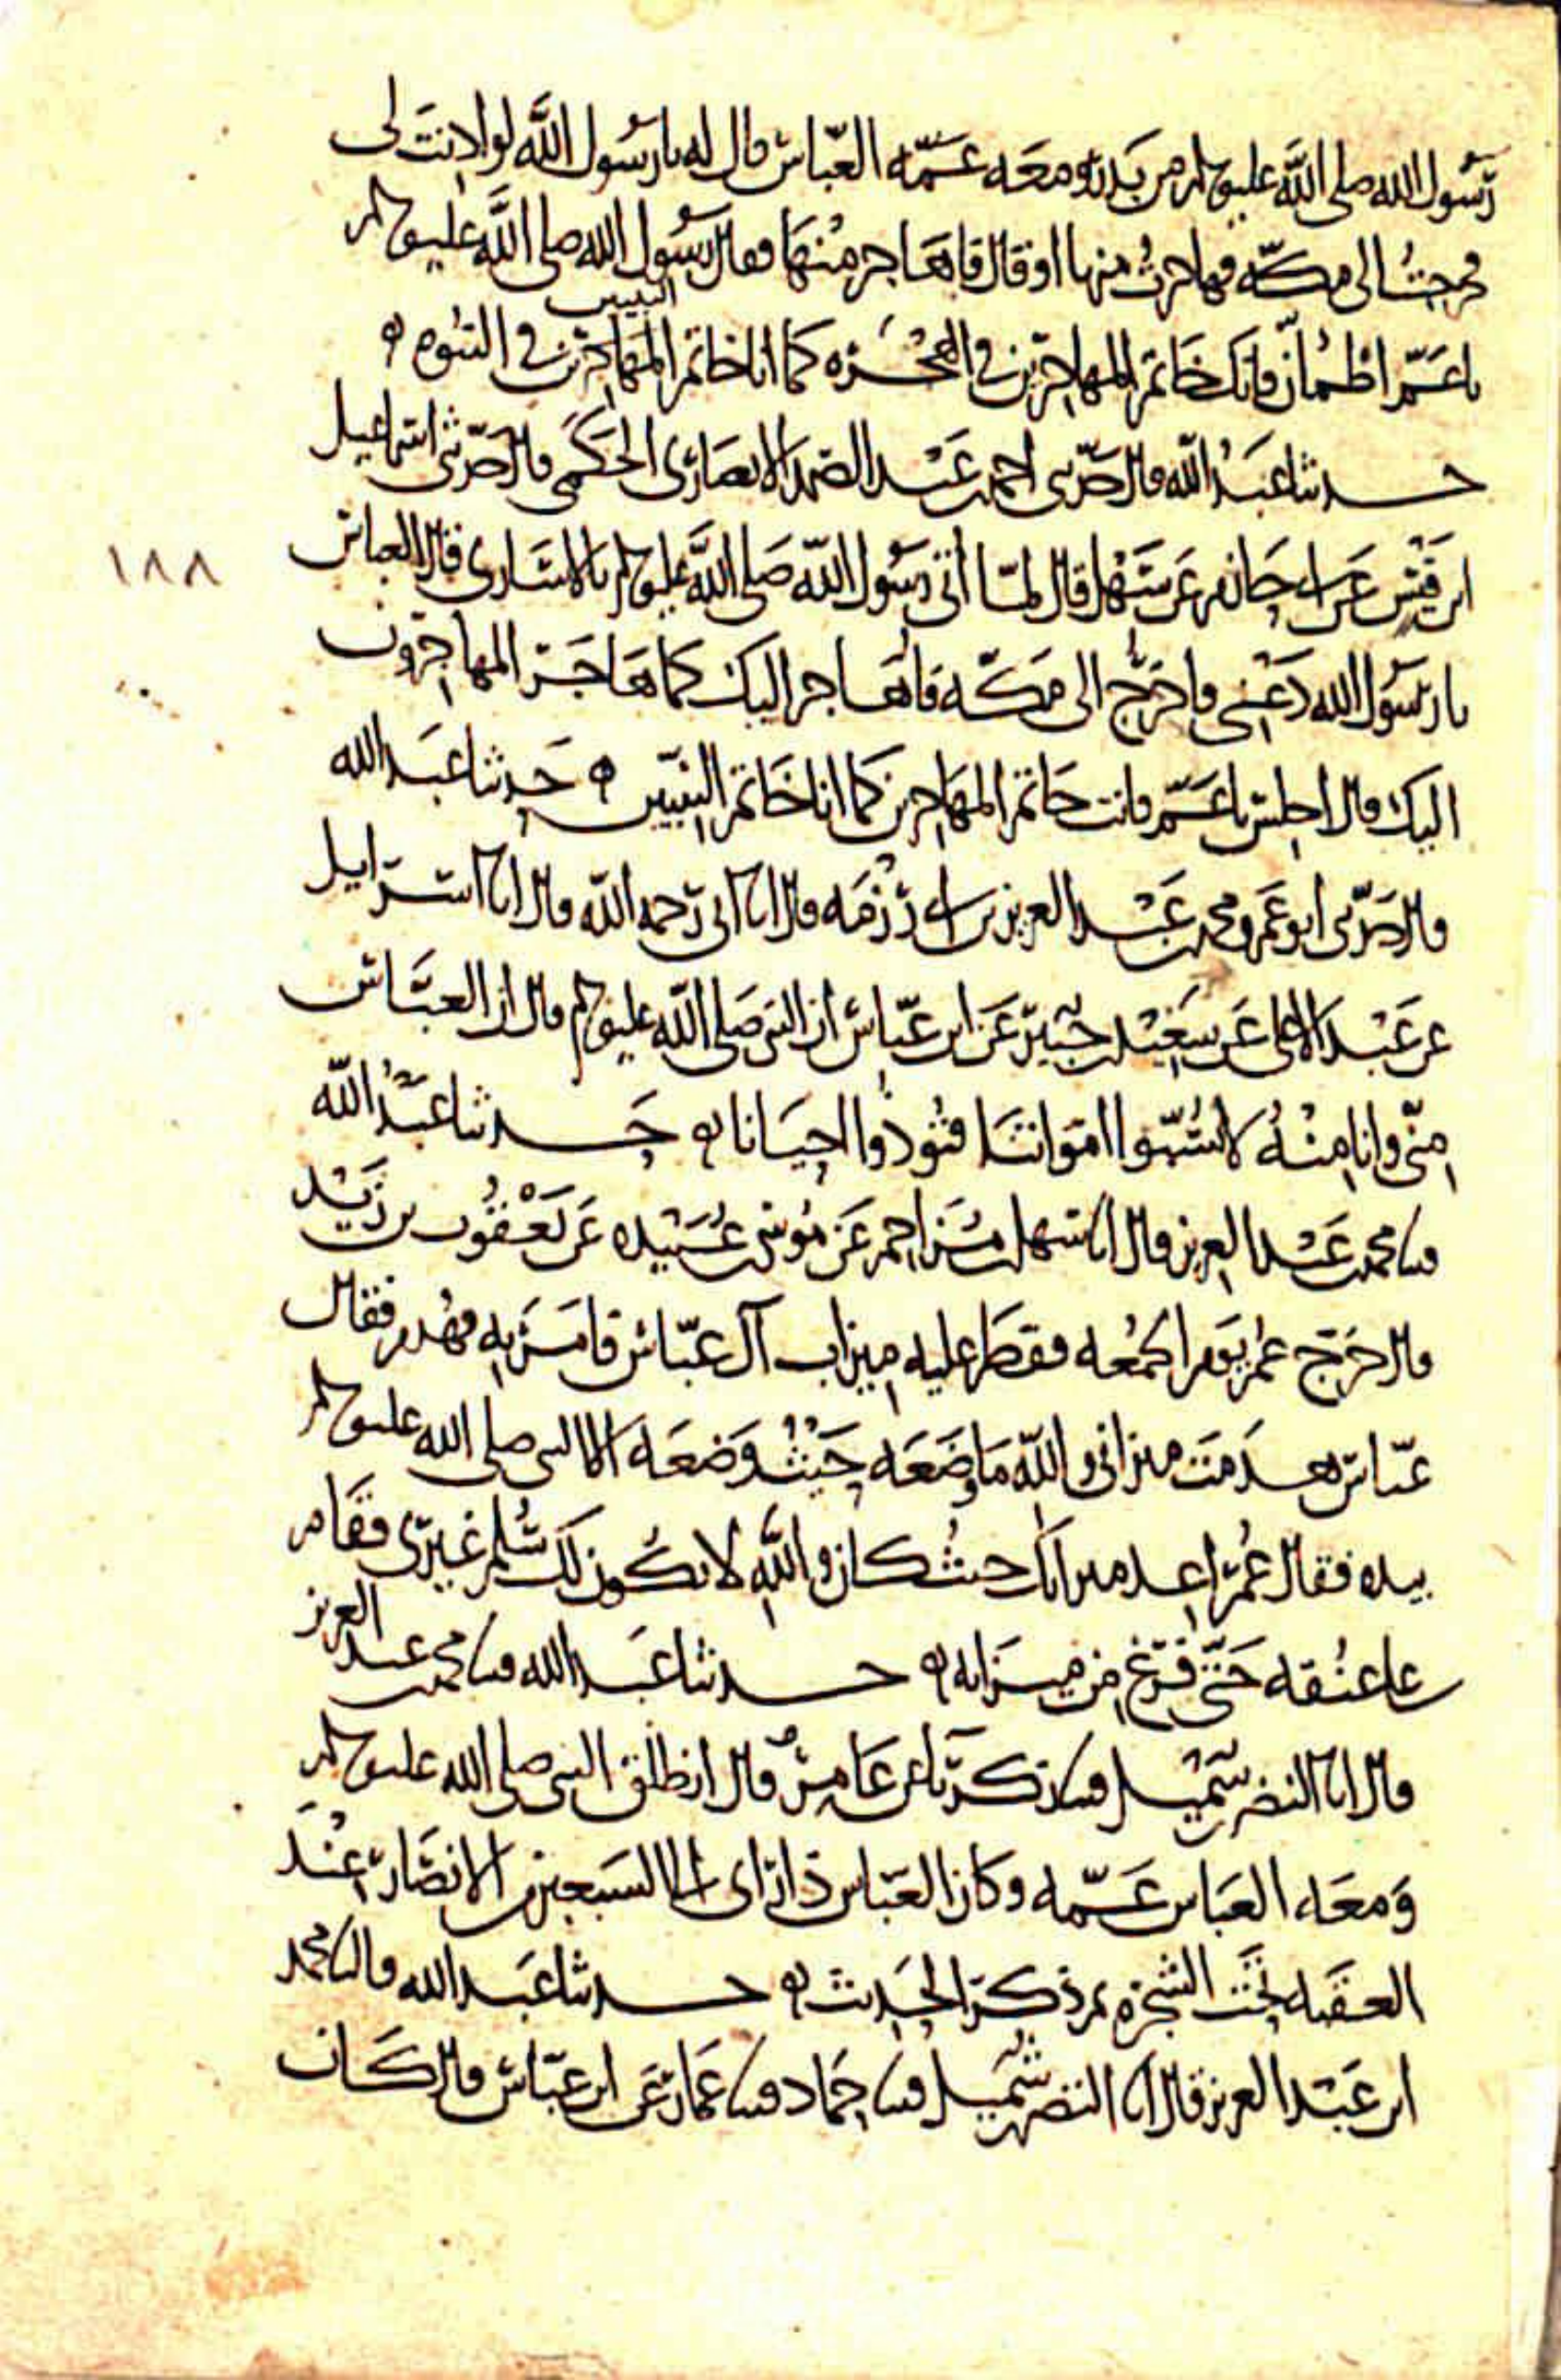 رسول الله صلى الله عليه وسلم من بدر ومعه عمه العباس قال له يا رسول الله لو اذنت لي
فخرجت الى مكة فهاجرت منها او قال فاهاجر منها فقال رسول الله صلى الله عليه وسلم
يا عم اطمأن فانك خاتم المهاجرين في الهجرة كما انا خاتم المهاجرين في النبوة
النبيين
حدثنا عبد الله قال حدثني احمد بن عبد الصمد الانصاري الحكمي قال حدثني اسماعيل
ابن قيس عن ابي حازم عن سهل قال لما اتي رسول الله صلى الله عليه وسلم بالاسارى قال العباس
١٨٨
يا رسول الله دعني فاخرج الى مكة فاهاجر اليك كما هاجر المهاجرون
اليك قال اجلس يا عم فانت خاتم المهاجرين كما انا خاتم النبيين حدثنا عبد الله
قال حدثني ابو عمرو محمد بن عبد العزيز بن ابي رزمة قال انا ابي رحمه الله قال انا اسرائيل
عن عبد الاعلى عن سعيد بن جبير عن ابن عباس ان النبي صلى الله عليه وسلم قال ان العباس
مني وانا منه لا تسبوا امواتنا فتوذوا احيانا حدثنا عبد الله
قثنا محمد بن عبد العزيز قال انا سهل بن مزاحم عن موسى بن عبيدة عن يعقوب بن زيد
قال خرج عمر يوم الجمعة فقطر عليه ميزاب آل عباس فامر به فهدم فقال
عباس هدمت ميزابي والله ما وضعه حيث وضعه الا النبي صلى الله عليه وسلم
بيده فقال عمر اعد ميزابك حيث كان والله لا يكون لك سلم غيري فقام
على عنقه حتى فرغ من ميزابه حدثنا عبد الله قثنا محمد بن عبد العزيز
قال انا النضر بن شميل قثنا زكريا عن عامر قال انطلق النبي صلى الله عليه وسلم
ومعه العباس عمه وكان العباس ذا راي الى السبعين من الانصار عند
العقبة تحت الشجرة ثم ذكر الحديث حدثنا عبد الله قال نا محمد
ابن عبد العزيز قال انا النضر بن شميل قثنا حماد قثنا عمار عن ابن عباس قال كان